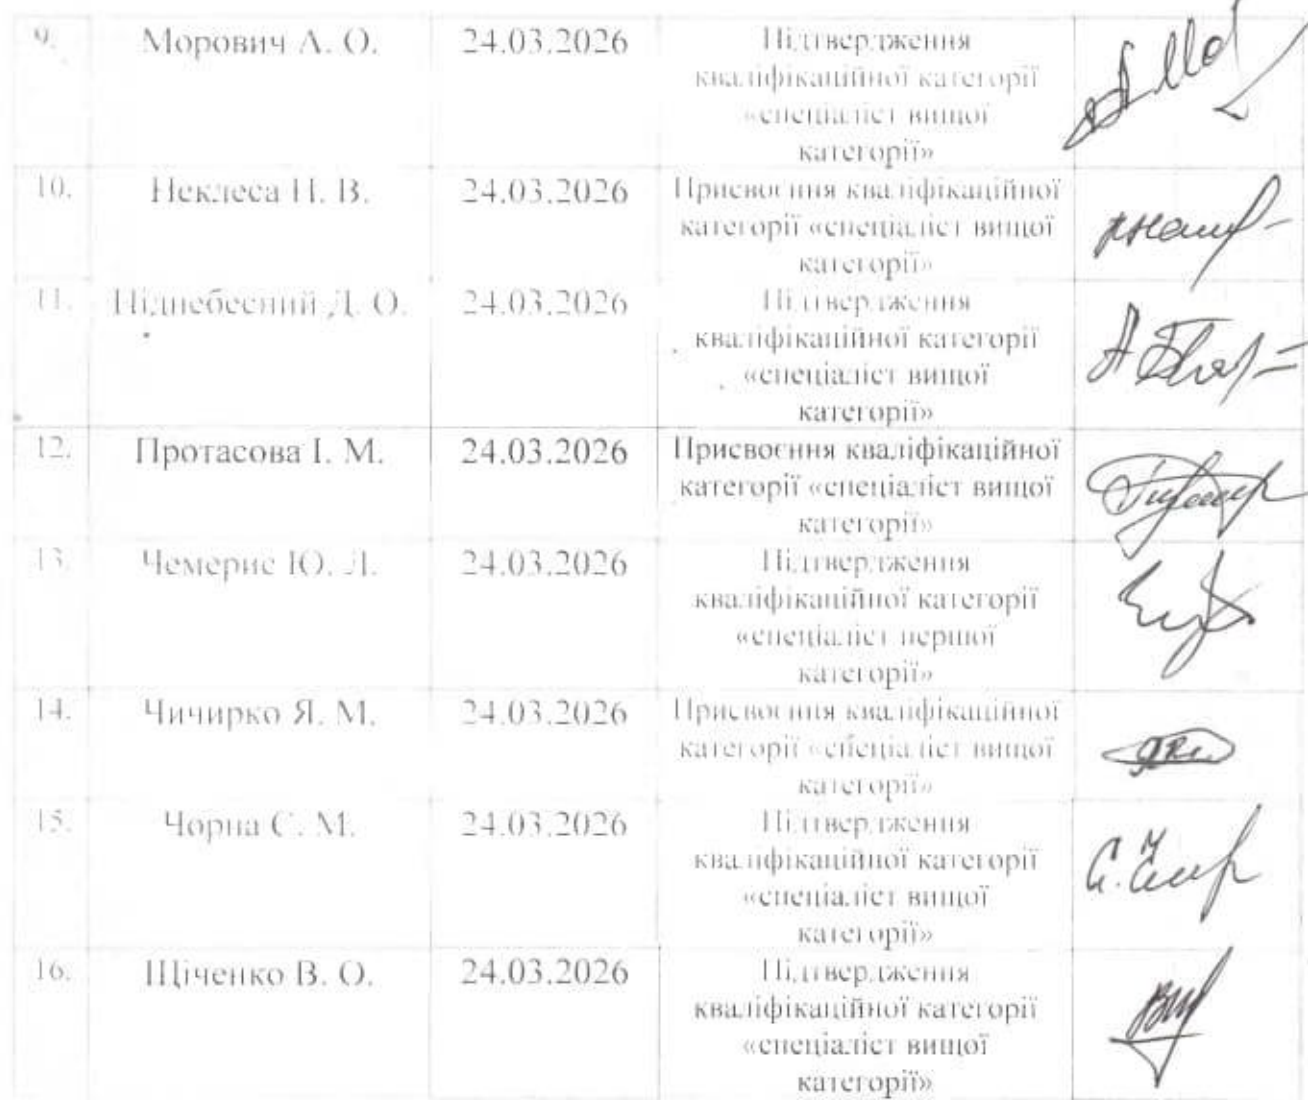 9. Морович А. О. 24.03.2026 Підтвердження
кваліфікаційної категорії
«спеціаліст вищої
категорії»
10. Неклеса Н. В. 24.03.2026 Присвоєння кваліфікаційної
категорії «спеціаліст вищої
категорії»
11. Піднебесний Д. О. 24.03.2026 Підтвердження
кваліфікаційної категорії
«спеціаліст вищої
категорії»
12. Протасова І. М. 24.03.2026 Присвоєння кваліфікаційної
категорії «спеціаліст вищої
категорії»
13. Чемерис Ю. Л. 24.03.2026 Підтвердження
кваліфікаційної категорії
«спеціаліст першої
категорії»
14. Чичирко Я. М. 24.03.2026 Присвоєння кваліфікаційної
категорії «спеціаліст вищої
категорії»
15. Чорна С. М. 24.03.2026 Підтвердження
кваліфікаційної категорії
«спеціаліст вищої
категорії»
16. Щіченко В. О. 24.03.2026 Підтвердження
кваліфікаційної категорії
«спеціаліст вищої
категорії»